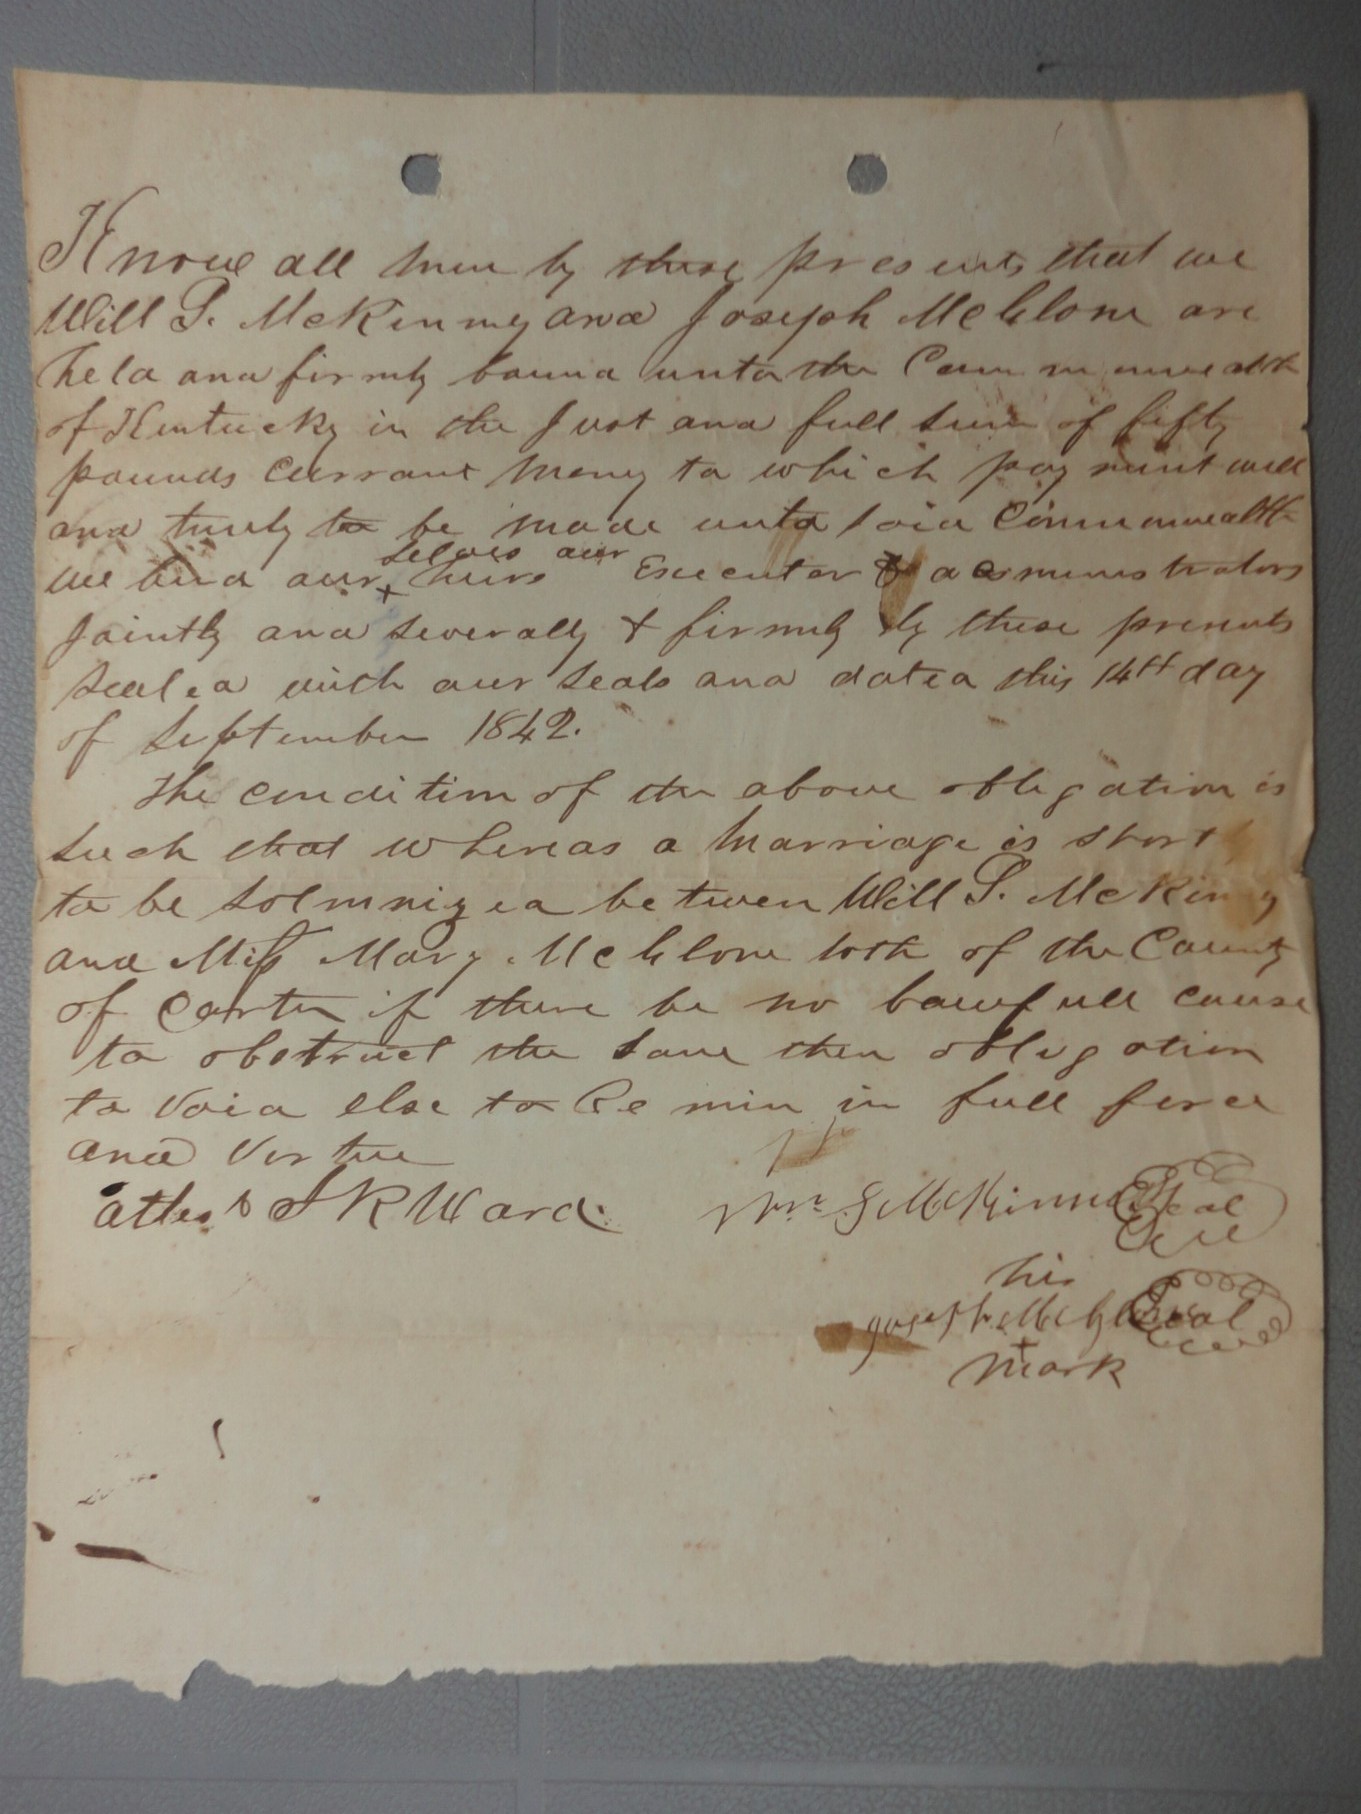 Know all men by these presents that we
Will S. McKinney and Joseph McGlone are
held and firmly bound unto the Commonwealth
of Kentucky in the Just and full sum of fifty
pounds currant money to which payment well
and truly to be made unto said Commonwealth
selves our
we bind our heirs Executor & administrators
Jointly and severally & firmly by these presents
sealed with our seals and dated this 14th day
of September 1842.
The condition of the above obligation is
such that whereas a marriage is short
to be solmnized between Will S. McKinny
and Miss Mary McGlone both of the County
of Carter if there be no lawfull cause
to obstruct the same then obligation
to void else to Remin in full force
and Virtue
attest J R Ward
Wm S McKinney Seal
his
Joseph McGlone Seal
+
mark